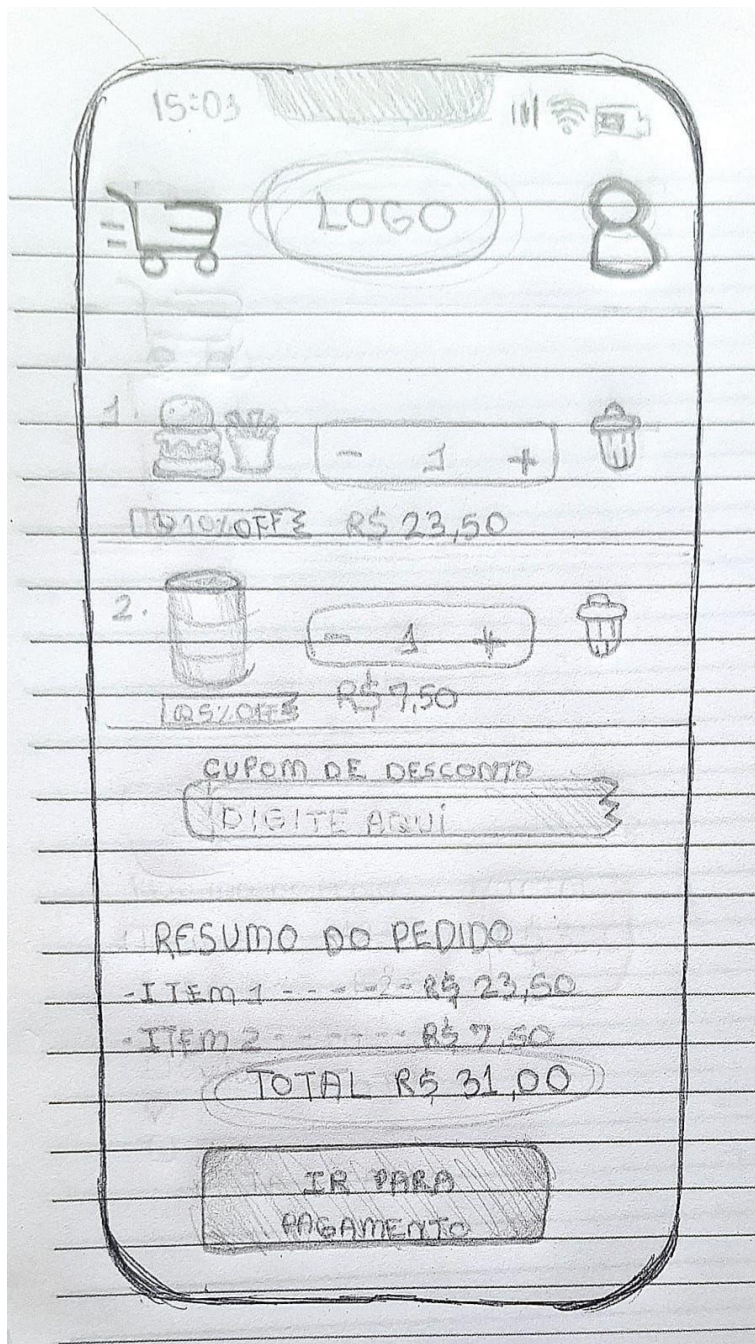 15:03
LOGO
1.
- 1 +
10%OFF R$ 23,50
2.
- 1 +
5%OFF R$7,50
CUPOM DE DESCONTO
DIGITE AQUI
RESUMO DO PEDIDO
-ITEM 1 ------ R$ 23,50
-ITEM 2 ------ R$ 7,50
TOTAL R$ 31,00
IR PARA
PAGAMENTO